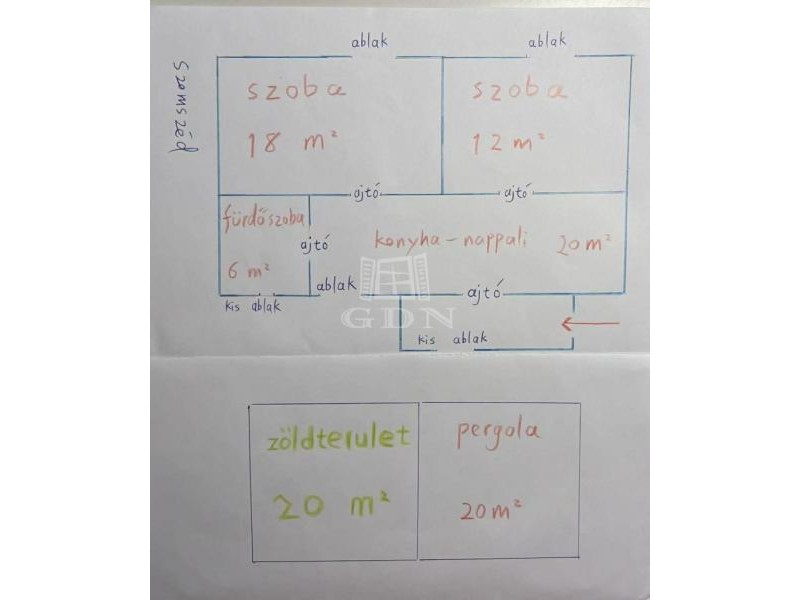 ablak
ablak
Szomszéd
szoba
18 m²
szoba
12 m²
ajtó
ajtó
fürdőszoba
6 m²
ajtó
konyha-nappali 20 m²
ablak
kis ablak
ajtó
GDN
kis ablak
zöldterulet
20 m²
pergola
20 m²